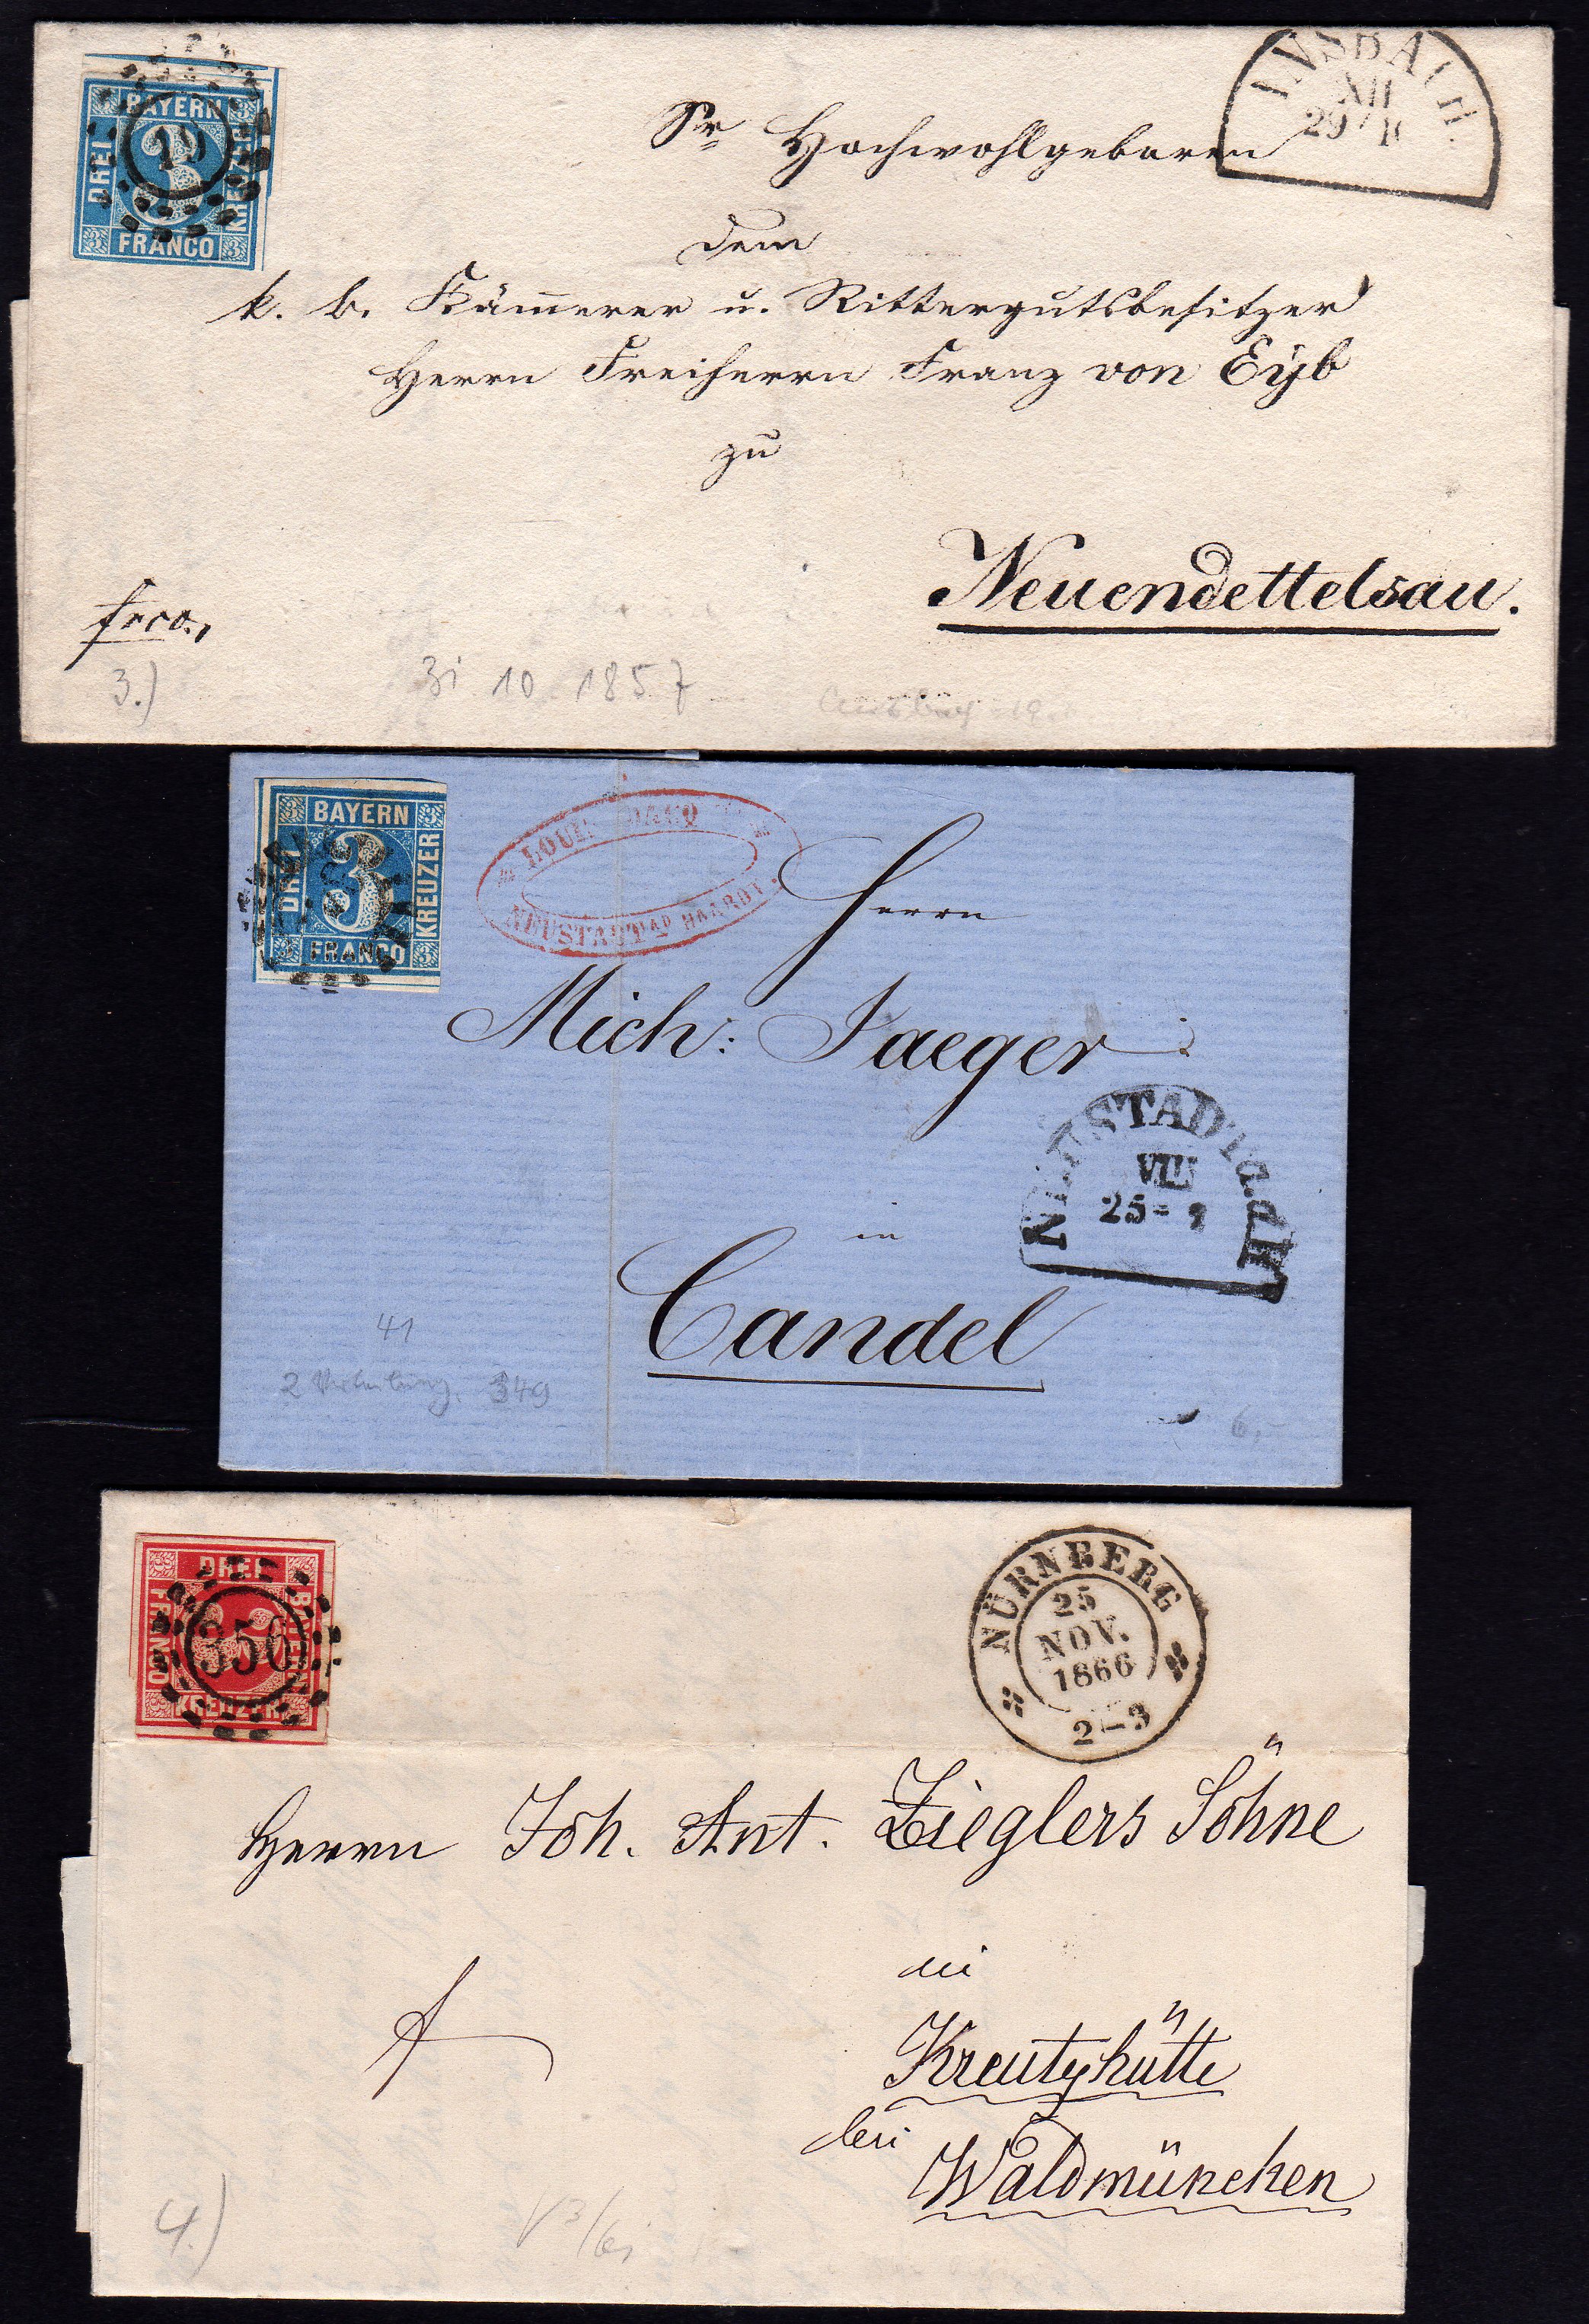 BAYERN
DREI
19
KREUZER
FRANCO
ANSBACH.
XII
29
Sr Hochwohlgeboren
dem
k. b. Kämmerer u. Rittergutsbesitzer
Herrn Freiherrn Franz von Eyb
zu
Neuendettelsau.
frco.
3.)
31 10 1857
BAYERN
DREI
3
KREUZER
FRANCO
NEUSTADT A/D HAARDT.
Herrn
Mich: Jaeger
NEUSTADT a.d.H.
VIII
25
in
Candel
41
2 Verteilung. 349
6,-
DREI
FRANCO
356
BAYERN
KREUZER
NÜRNBERG
25
NOV.
1866
2-3
Herrn Joh. Ant. Zieglers Söhne
in
Kreutzhütte
bei
Waldmünchen
4.)